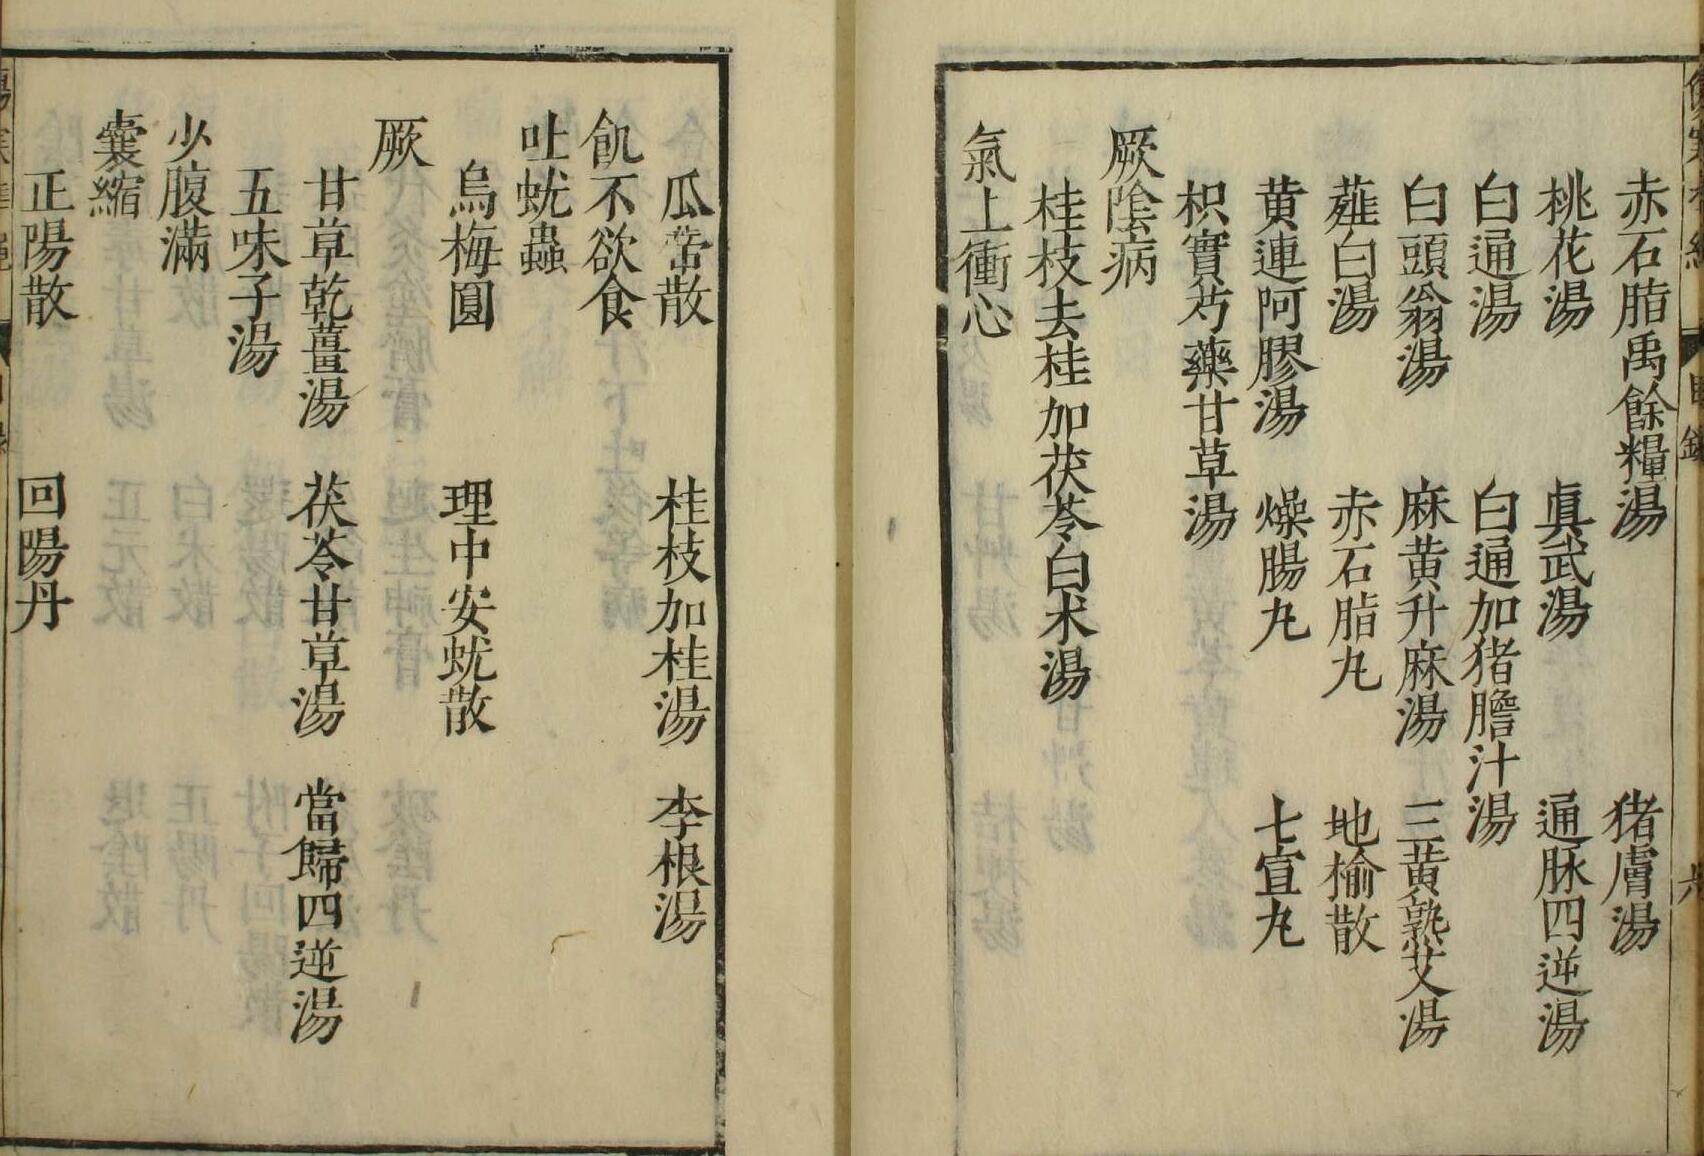 赤石脂禹餘糧湯 猪膚湯
桃花湯 真武湯 通脉四逆湯
白通湯 白通加猪膽汁湯
白頭翁湯 麻黄升麻湯 三黄熟艾湯
薤白湯 赤石脂丸 地榆散
黄連阿膠湯 燥腸丸 七宣丸
枳實芍藥甘草湯
厥陰病
桂枝去桂加茯苓白术湯
氣上衝心
瓜蒂散 桂枝加桂湯 李根湯
飢不欲食
吐蚘蟲
烏梅圓 理中安蚘散
厥
甘草乾薑湯 茯苓甘草湯 當歸四逆湯
五味子湯
少腹滿
囊縮
正陽散 回陽丹